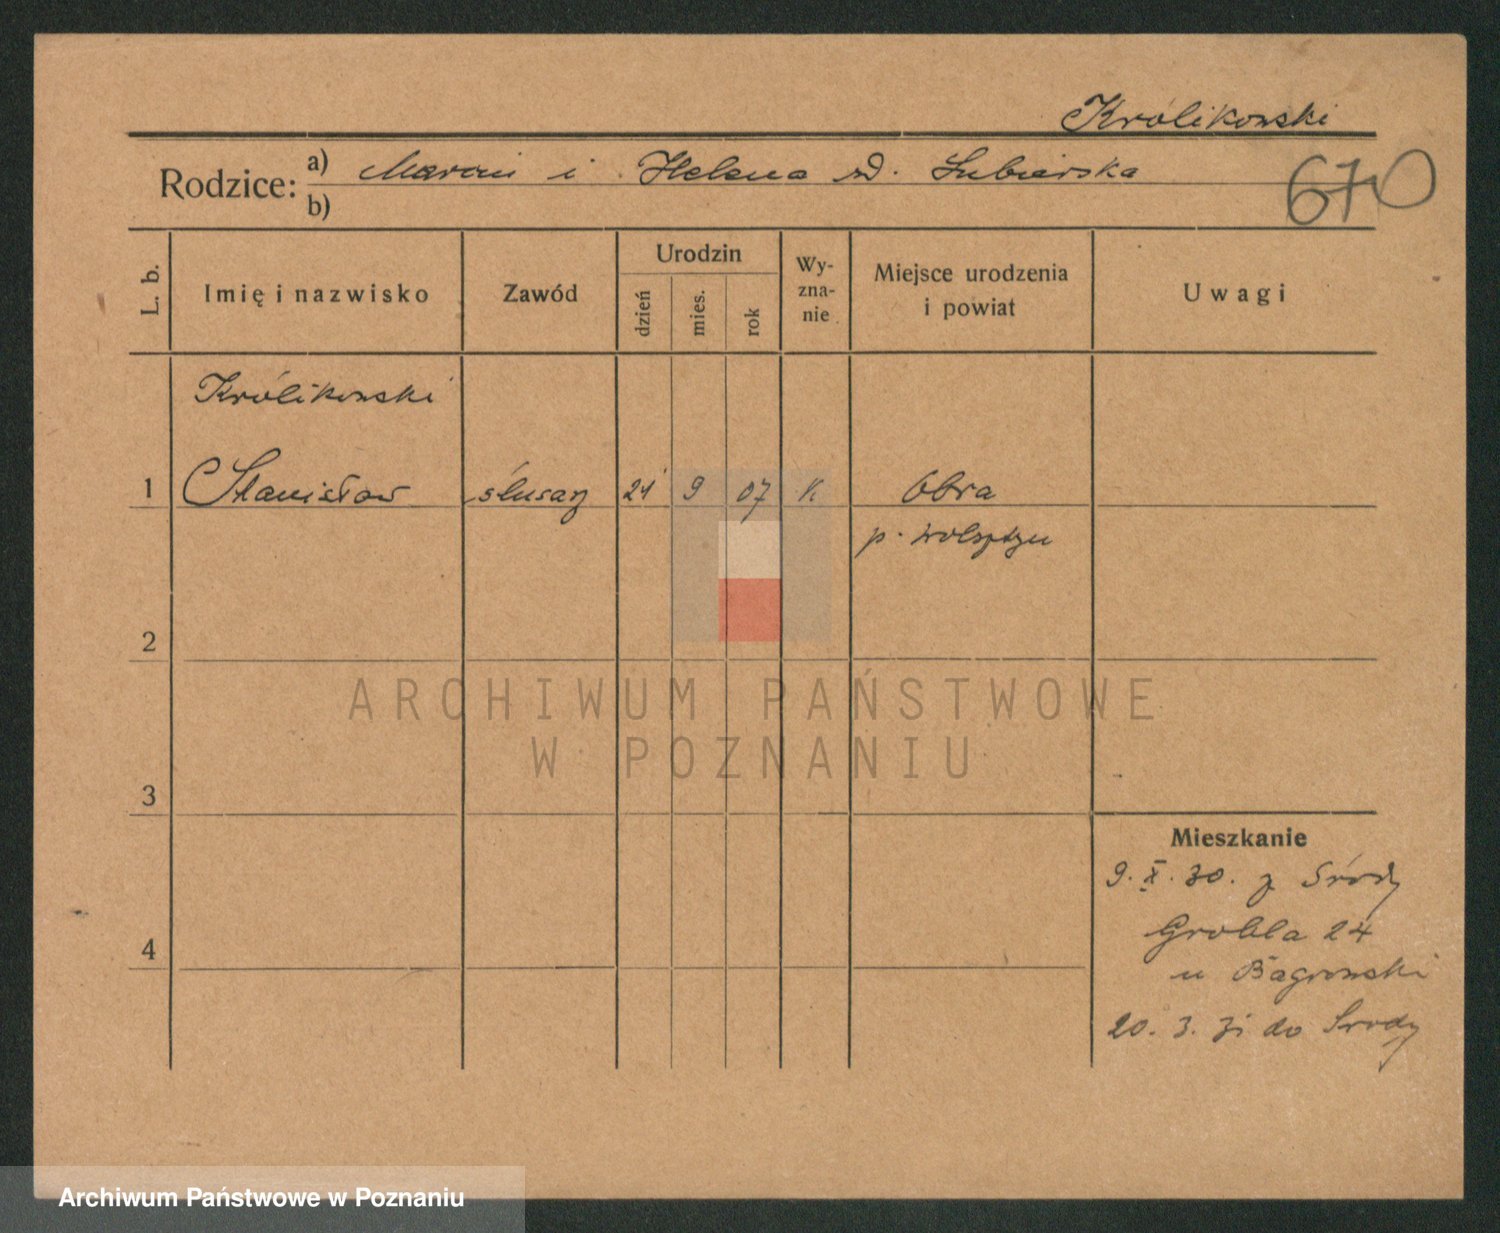 Królikowski
Rodzice: a) Marcin i Helena zd. Lubierska
b)
670
L. b.
Imię i nazwisko
Zawód
Urodzin
dzień
mies.
rok
Wy-
zna-
nie
Miejsce urodzenia
i powiat
Uwagi
Królikowski
1 Stanisław ślusarz 21 9 07 K Obra
p. Wolsztyn
2
ARCHIWUM PAŃSTWOWE
W POZNANIU
3
Mieszkanie
9.X.30. z Środy
Grobla 24
4
u Bagrowski
20. 3. 31 do Srody
Archiwum Państwowe w Poznaniu